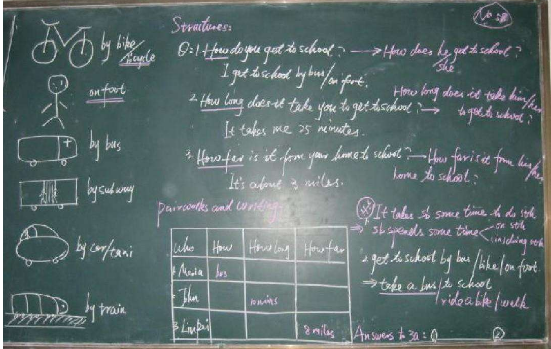 by bike
bicycle
on foot
by bus
by subway
by car/taxi
by train
Structures:
Q: 1. How do you get to school? → How does he get to school?
she
I get to school by bus/on foot.
2. How long does it take you to get to school? → How long does it take him/her
to get to school?
It takes me 25 minutes.
3. How far is it from your home to school? → How far is it from his/her
home to school?
It's about 3 miles.
pairworks and writing
Who How How long How far
1. Maria bus
2. John 10 mins
3. 8 miles
It takes sb some time to do sth
sb spends some time on sth
in doing sth
2. get to school by bus / bike / on foot
→ take a bus to school
ride a bike / walk
Answers to 3a: ① ②